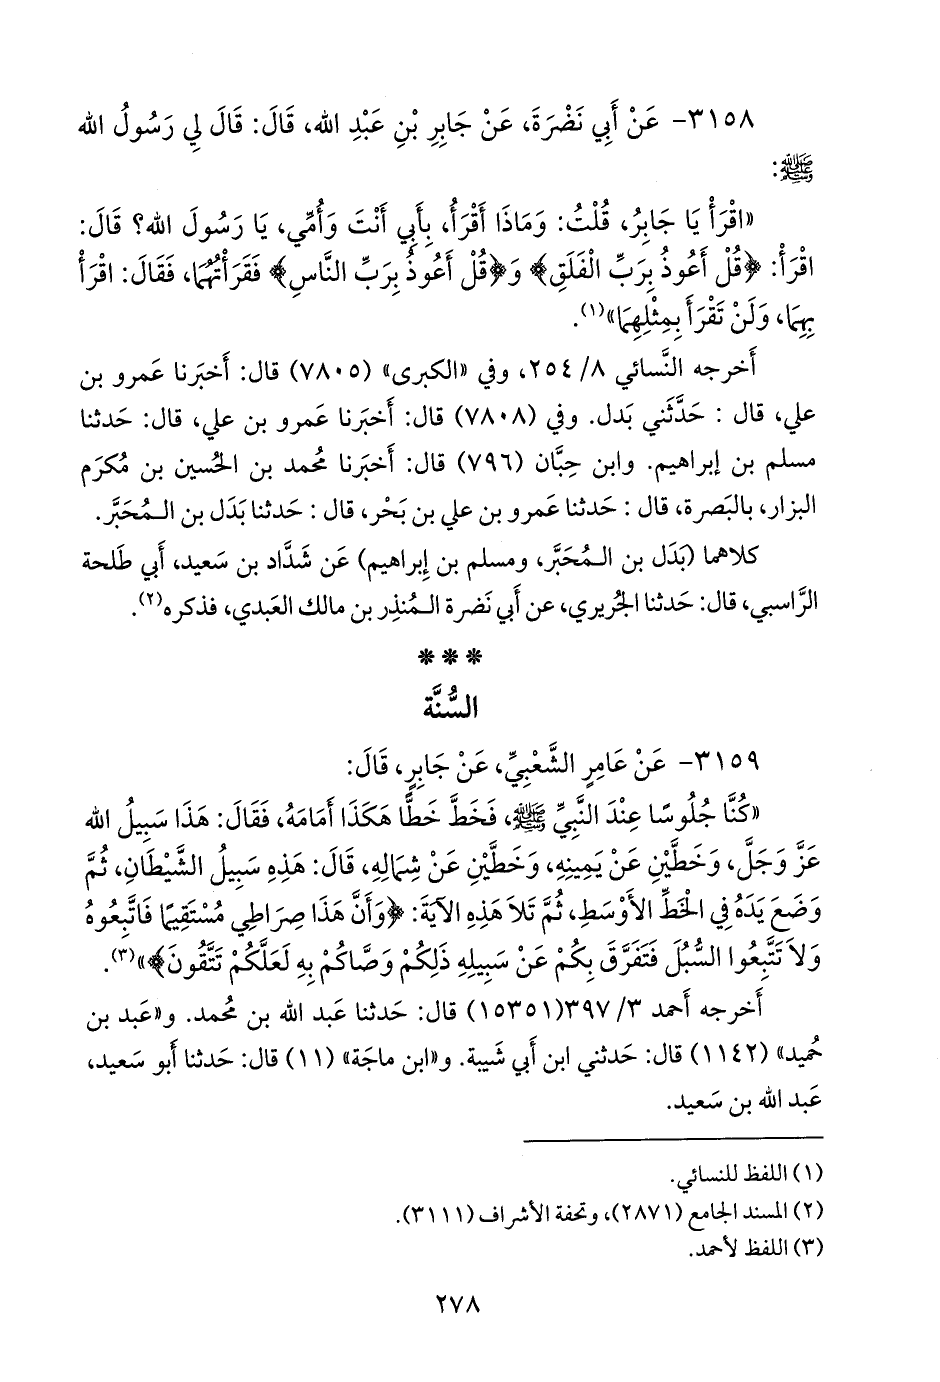 ٣١٥٨- عَنْ أَبِي نَضْرَةَ، عَنْ جَابِرِ بْنِ عَبْدِ الله، قَالَ: قَالَ لِي رَسُولُ الله
ﷺ:
«اقْرَأْ يَا جَابِرُ، قُلْتُ: وَمَاذَا أَقْرَأُ، بِأَبِي أَنْتَ وَأُمِّي، يَا رَسُولَ الله؟ قَالَ:
اقْرَأْ: ﴿قُلْ أَعُوذُ بِرَبِّ الْفَلَقِ﴾ وَ﴿قُلْ أَعُوذُ بِرَبِّ النَّاسِ﴾ فَقَرَأْتُهُمَا، فَقَالَ: اقْرَأْ
بِهِمَا، وَلَنْ تَقْرَأَ بِمِثْلِهِمَا»(١).
أَخرجه النَّسائي ٨/ ٢٥٤، وفي «الكبرى» (٧٨٠٥) قال: أَخبَرنا عَمرو بن
علي، قال : حَدَّثَني بَدل. وفي (٧٨٠٨) قال: أَخبَرنا عَمرو بن علي، قال: حَدثنا
مسلم بن إبراهيم. وابن حِبَّان (٧٩٦) قال: أَخبَرنا مُحمد بن الحُسين بن مُكرَم
البزار، بالبَصرة، قال : حَدثنا عَمرو بن علي بن بَحْر، قال : حَدثنا بَدَل بن الـمُحَبَّر.
كلاهما (بَدَل بن الـمُحَبَّر، ومسلم بن إِبراهيم) عَن شَدَّاد بن سَعيد، أَبي طَلحة
الرَّاسبي، قال: حَدثنا الجُريري، عن أَبي نَضرة الـمُنذِر بن مالك العَبدي، فذكره(٢).
* * *
السُّنَّة
٣١٥٩- عَنْ عَامِرٍ الشَّعْبِيِّ، عَنْ جَابِرٍ، قَالَ:
«كُنَّا جُلُوسًا عِنْدَ النَّبِيِّ ﷺ، فَخَطَّ خَطًّا هَكَذَا أَمَامَهُ، فَقَالَ: هَذَا سَبِيلُ الله
عَزَّ وَجَلَّ، وَخَطَّيْنِ عَنْ يَمِينِهِ، وَخَطَّيْنِ عَنْ شِمَالِهِ، قَالَ: هَذِهِ سَبِيلُ الشَّيْطَانِ، ثُمَّ
وَضَعَ يَدَهُ فِي الْخَطِّ الأَوْسَطِ، ثُمَّ تَلاَ هَذِهِ الآيَةَ: ﴿وَأَنَّ هَذَا صِرَاطِي مُسْتَقِيمًا فَاتَّبِعُوهُ
وَلاَ تَتَّبِعُوا السُّبُلَ فَتَفَرَّقَ بِكُمْ عَنْ سَبِيلِهِ ذَلِكُمْ وَصَّاكُمْ بِهِ لَعَلَّكُمْ تَتَّقُونَ﴾»(٣).
أَخرجه أَحمد ٣/ ٣٩٧(١٥٣٥١) قال: حَدثنا عَبد الله بن مُحمد. و«عَبد بن
حُميد» (١١٤٢) قال: حَدثني ابن أَبي شَيبة. و«ابن ماجَة» (١١) قال: حَدثنا أَبو سَعيد،
عَبد الله بن سَعيد.
(١) اللفظ للنسائي.
(٢) المسند الجامع (٢٨٧١)، وتحفة الأشراف (٣١١١).
(٣) اللفظ لأحمد.
٢٧٨